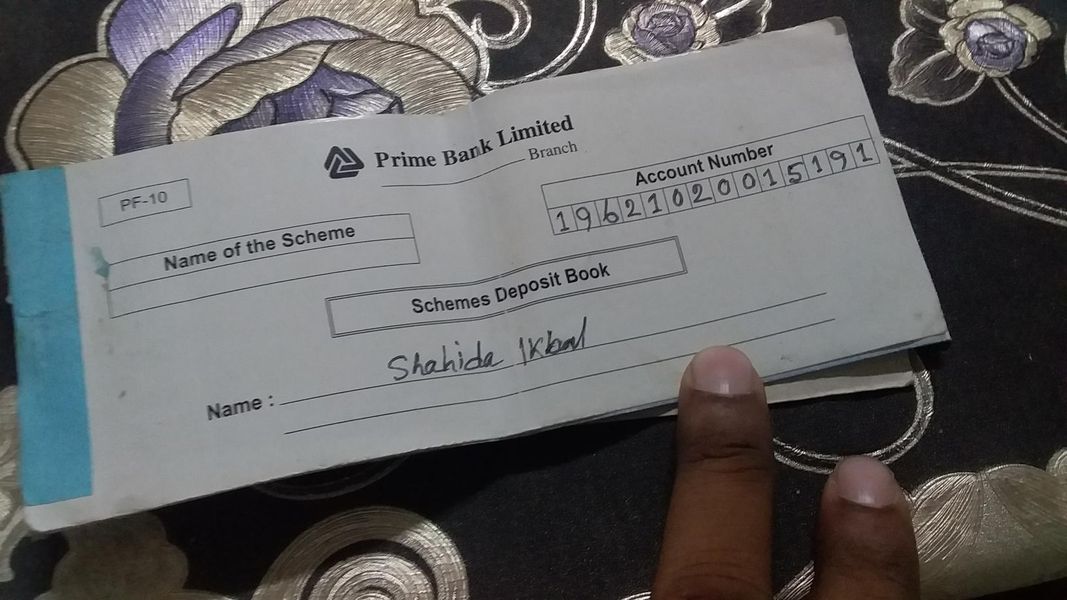 Prime Bank Limited
Branch
PF-10
Account Number
19621020015191
Name of the Scheme
Schemes Deposit Book
Shahida Ikbal
Name :